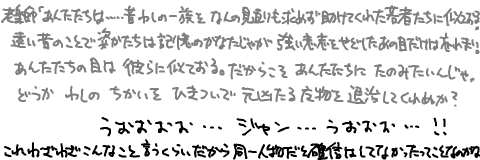 老龍「あんたたちは……昔わしの一族を なんの見返りも求めず助けてくれた若者たちに似ておる
遠い昔のことで姿かたちは記憶のかなたじゃが 強い意志をやどしたあの目だけは忘れまい
あんたたちの目は 彼らに似ておる。だからこそ あんたたちに たのみたいんじゃ。
どうか わしの ちかいを ひきついで 元凶たる魔物を 退治してくれぬか?
うおおおお… ジャン… うおおおお… !!
これわざわざこんなこと言うくらいだから 同一人物だと確信はしてなかったってことなのかな